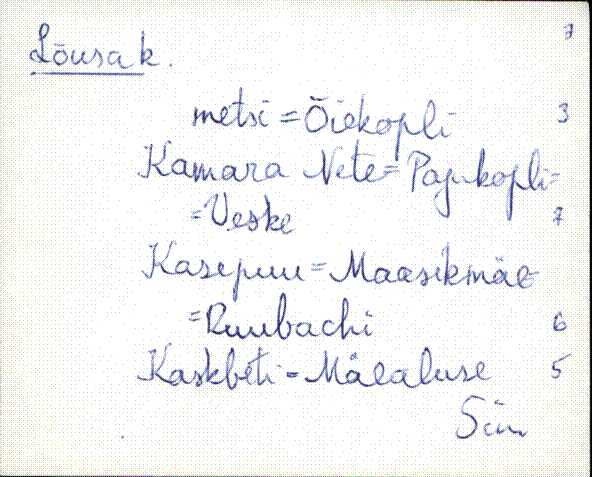 7
Lõusa k.
metsi = Õiekopli 3
Kamara Nete = Pajukopli =
= Veske 7
Kasepuu = Maasikmäe
= Ruubachi 6
Kaskbeti - Mäealuse 5
Sim